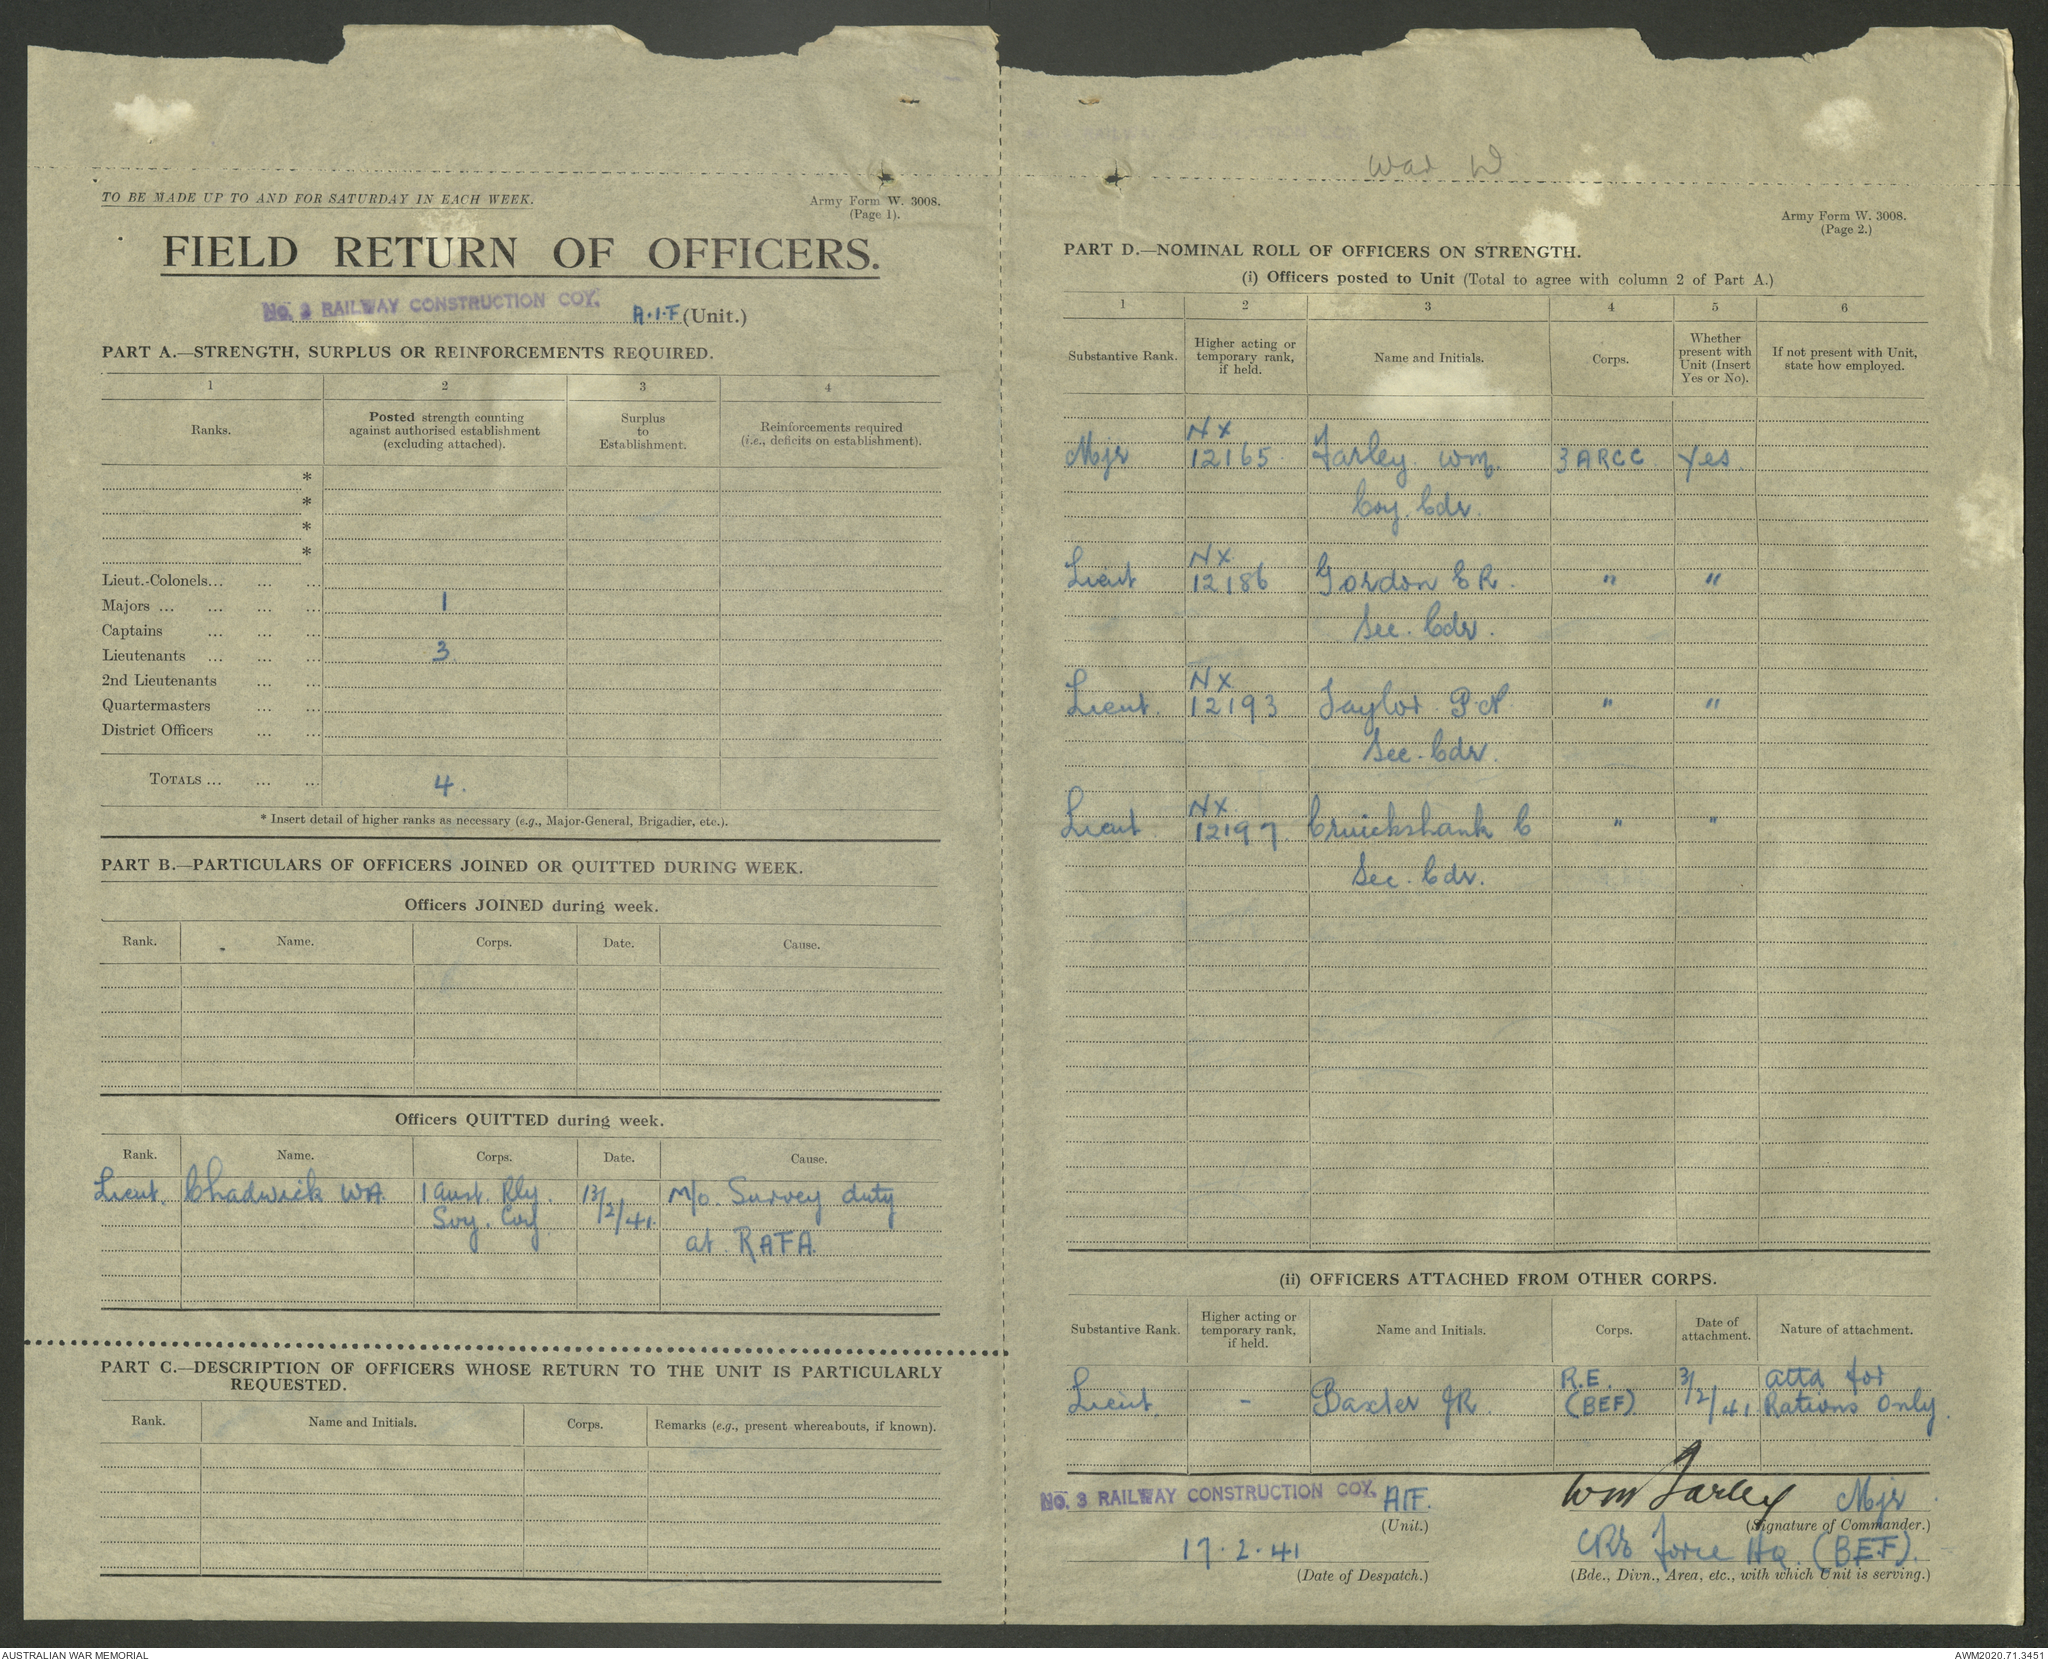 TO BE MADE UP TO AND FOR SATURDAY IN EACH WEEK.
Army Form W. 3008.
(Page 1).
FIELD RETURN OF OFFICERS.
No. 3 RAILWAY CONSTRUCTION COY. A.I.F (Unit.)
PART A.—STRENGTH, SURPLUS OR REINFORCEMENTS REQUIRED.
1 2 3 4
Ranks. Posted strength counting against authorised establishment (excluding attached). Surplus to Establishment. Reinforcements required (i.e., deficits on establishment).
*
*
*
*
Lieut.-Colonels... ... ...
Majors ... ... ... ... 1
Captains ... ... ...
Lieutenants ... ... ... 3
2nd Lieutenants ... ...
Quartermasters ... ...
District Officers ... ...
TOTALS ... ... ... 4.
* Insert detail of higher ranks as necessary (e.g., Major-General, Brigadier, etc.).
PART B.—PARTICULARS OF OFFICERS JOINED OR QUITTED DURING WEEK.
Officers JOINED during week.
Rank. Name. Corps. Date. Cause.
Officers QUITTED during week.
Rank. Name. Corps. Date. Cause.
Lieut. Chadwick WA 1 Aust. Rly. 13/2/41. M/o. Survey duty
Svy. Coy at RAFA
PART C.—DESCRIPTION OF OFFICERS WHOSE RETURN TO THE UNIT IS PARTICULARLY
REQUESTED.
Rank. Name and Initials. Corps. Remarks (e.g., present whereabouts, if known).
War D
Army Form W. 3008.
(Page 2.)
PART D.—NOMINAL ROLL OF OFFICERS ON STRENGTH.
(i) Officers posted to Unit (Total to agree with column 2 of Part A.)
1 2 3 4 5 6
Substantive Rank. Higher acting or temporary rank, if held. Name and Initials. Corps. Whether present with Unit (Insert Yes or No). If not present with Unit, state how employed.
NX
Mjr 12165 Farley Wm. 3 ARCC Yes
Coy. Cdr.
NX
Lieut 12186 Gordon C R. " "
Sec. Cdr.
NX
Lieut. 12193 Taylor P. " "
Sec. Cdr.
NX
Lieut 12197 Cruickshank C " "
Sec. Cdr.
(ii) OFFICERS ATTACHED FROM OTHER CORPS.
Substantive Rank. Higher acting or temporary rank, if held. Name and Initials. Corps. Date of attachment. Nature of attachment.
Lieut. - Baxter JR. R.E. (BEF) 3/2/41 attd for Rations Only.
No. 3 RAILWAY CONSTRUCTION COY. AIF.
(Unit.)
17.2.41
(Date of Despatch.)
Wm Farley Mjr
(Signature of Commander.)
CRE Force HQ. (B.E.F).
(Bde., Divn., Area, etc., with which Unit is serving.)
AUSTRALIAN WAR MEMORIAL
AWM2020.71.3451